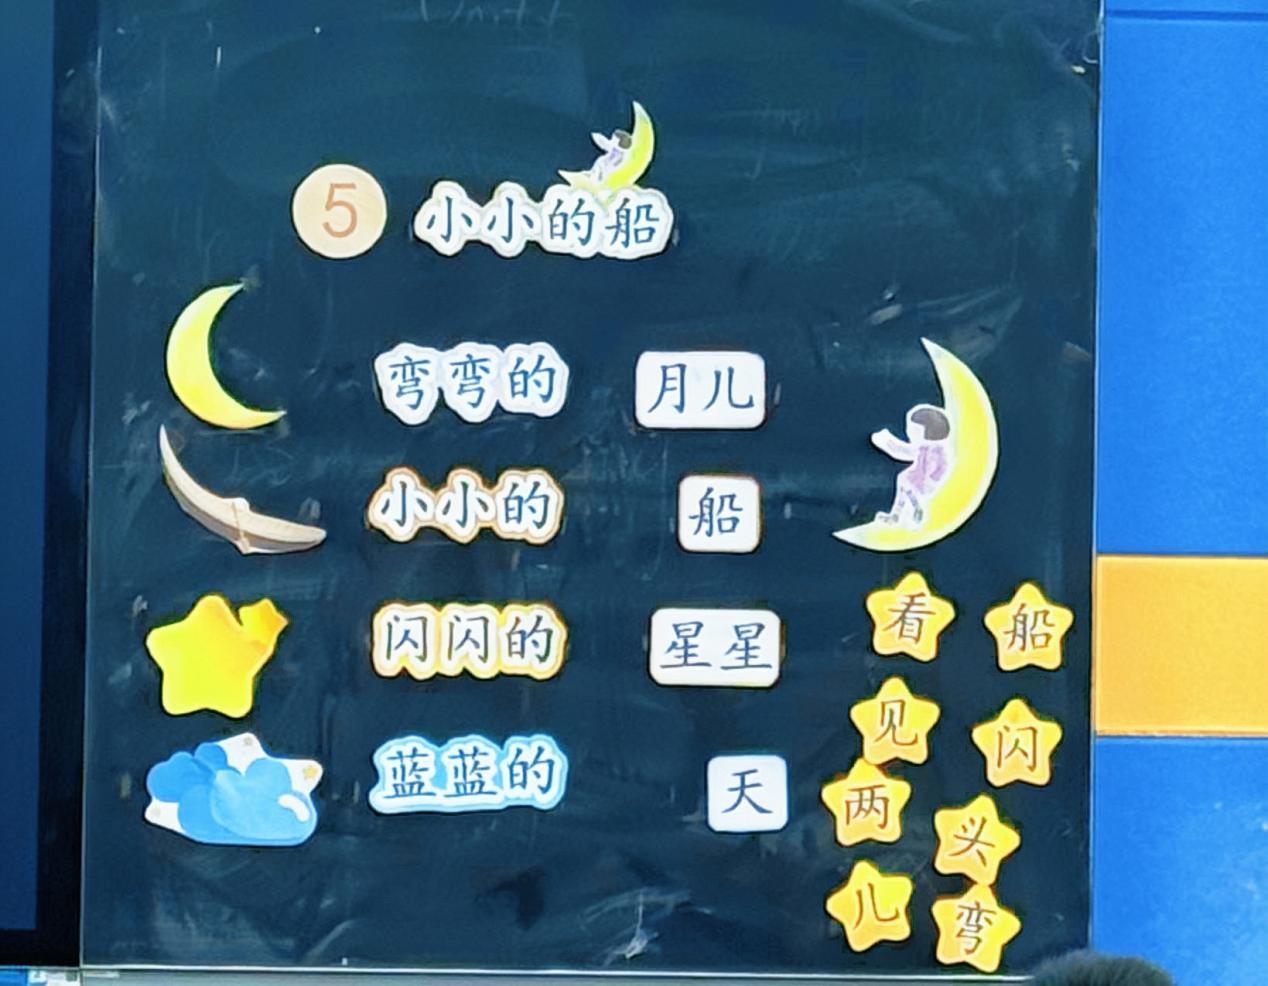 Unit 1
5 小小的船
弯弯的 月儿
小小的 船
闪闪的 星星
蓝蓝的 天
看 船
见 闪
两 头
儿 弯